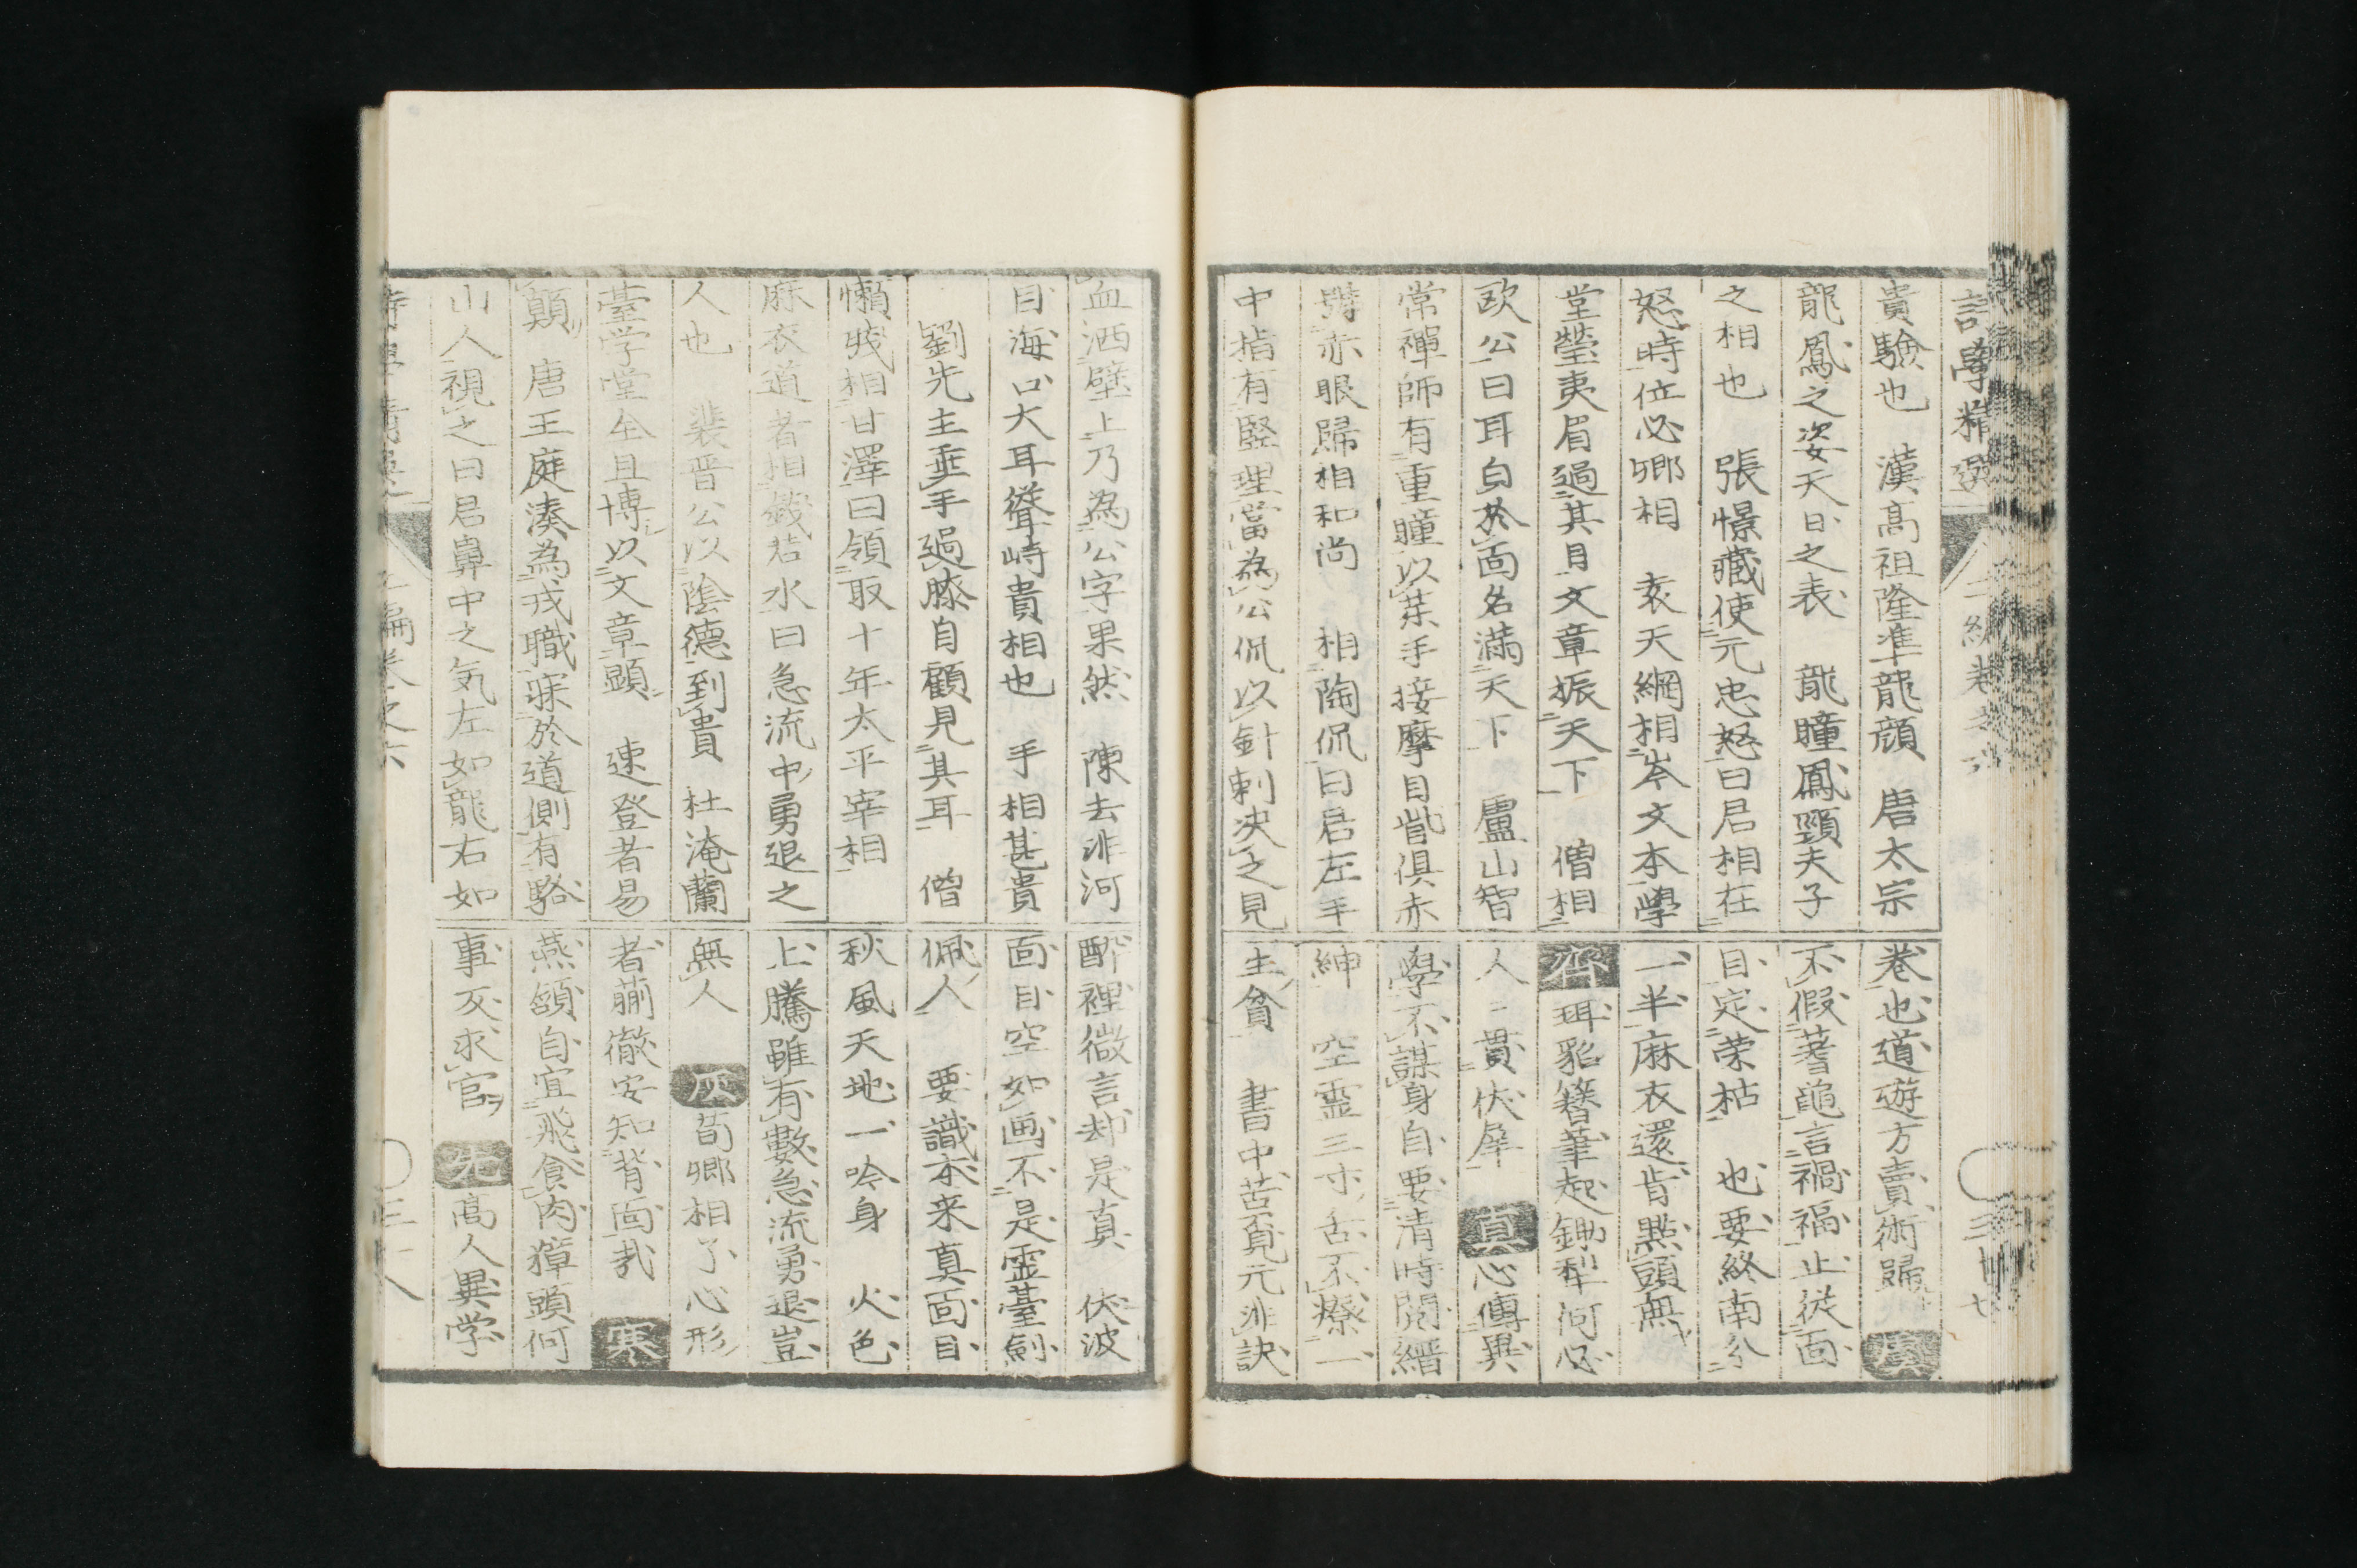 詩學精選 二編卷之六
貴驗也 漢高祖隆準龍顔 唐太宗
龍鳳之姿天日之表 龍瞳鳳頸夫子
之相也 張憬藏使元忠怒曰君相在
怒時位必卿相 袁天綱相岑文本學
堂瑩夷眉過其目文章振天下 僧相
欧公曰耳白於面名滿天下 盧山智
常禪師有重瞳以茱手接摩目眥俱赤
号赤眼歸相和尚 相陶侃曰君左手
中指有竪理當為公侃以針刺決之見
巻也道遊方賣術歸
不假蓍龜言禍福止従面
目定荣枯 也要終南分
一半麻衣還肯點頭無
齊 珥貂簪筆起鋤犁何必
人〻貫伏犀 真 心傳異
學不謀身自要清時閲縉
紳 空霊三寸舌不療一
生貧 書中苦覔元非訣
三十七
血洒壁上乃為公字果然 陳去非河
目海口大耳聳峙貴相也 手相甚貴
劉先主垂手過膝自顧見其耳 僧
懶残相 甘澤曰領取十年太平宰相
麻衣道者相錢若水曰急流中勇退之
人也 裴晋公以陰德到貴 杜淹蘭
薹学堂全且博以文章顕 速登者易
顛 唐王庭湊為戎職寐於道側有駱
山人視之曰君鼻中之気左如龍右如
酔裡微言却是真 伏波
面目空如画不是霊薹劍
佩人 要識本来真面目
秋風天地一吟身 火色
上騰雖有數急流勇退豈
無人 灰 荀卿相了心形
者蒯徹安知背面哉 寒
燕頷自宜飛食肉獐頭何
事亥求官 先 高人異学
二編巻之六
三十八